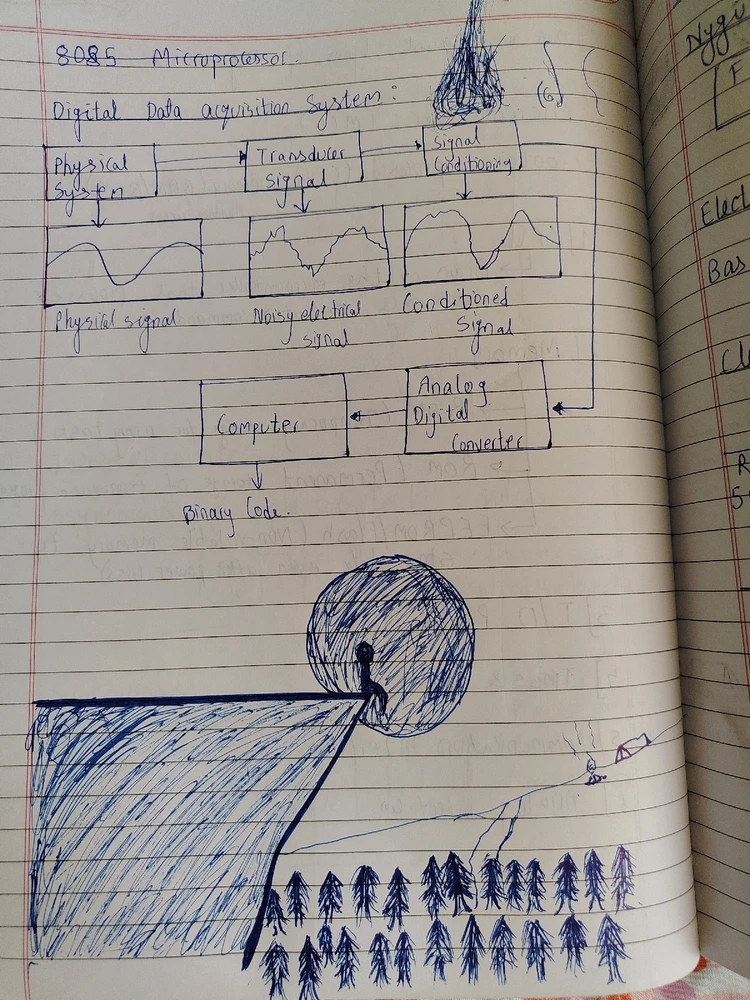 8085 Microprocessor.
Digital Data acquisition System:
(G)
Physical
System
Transducer
Signal
Signal
Conditioning
Physical signal
Noisy electrical
signal
Conditioned
Signal
Computer
Analog
Digital
Converter
Binary Code.
Elect
Bas